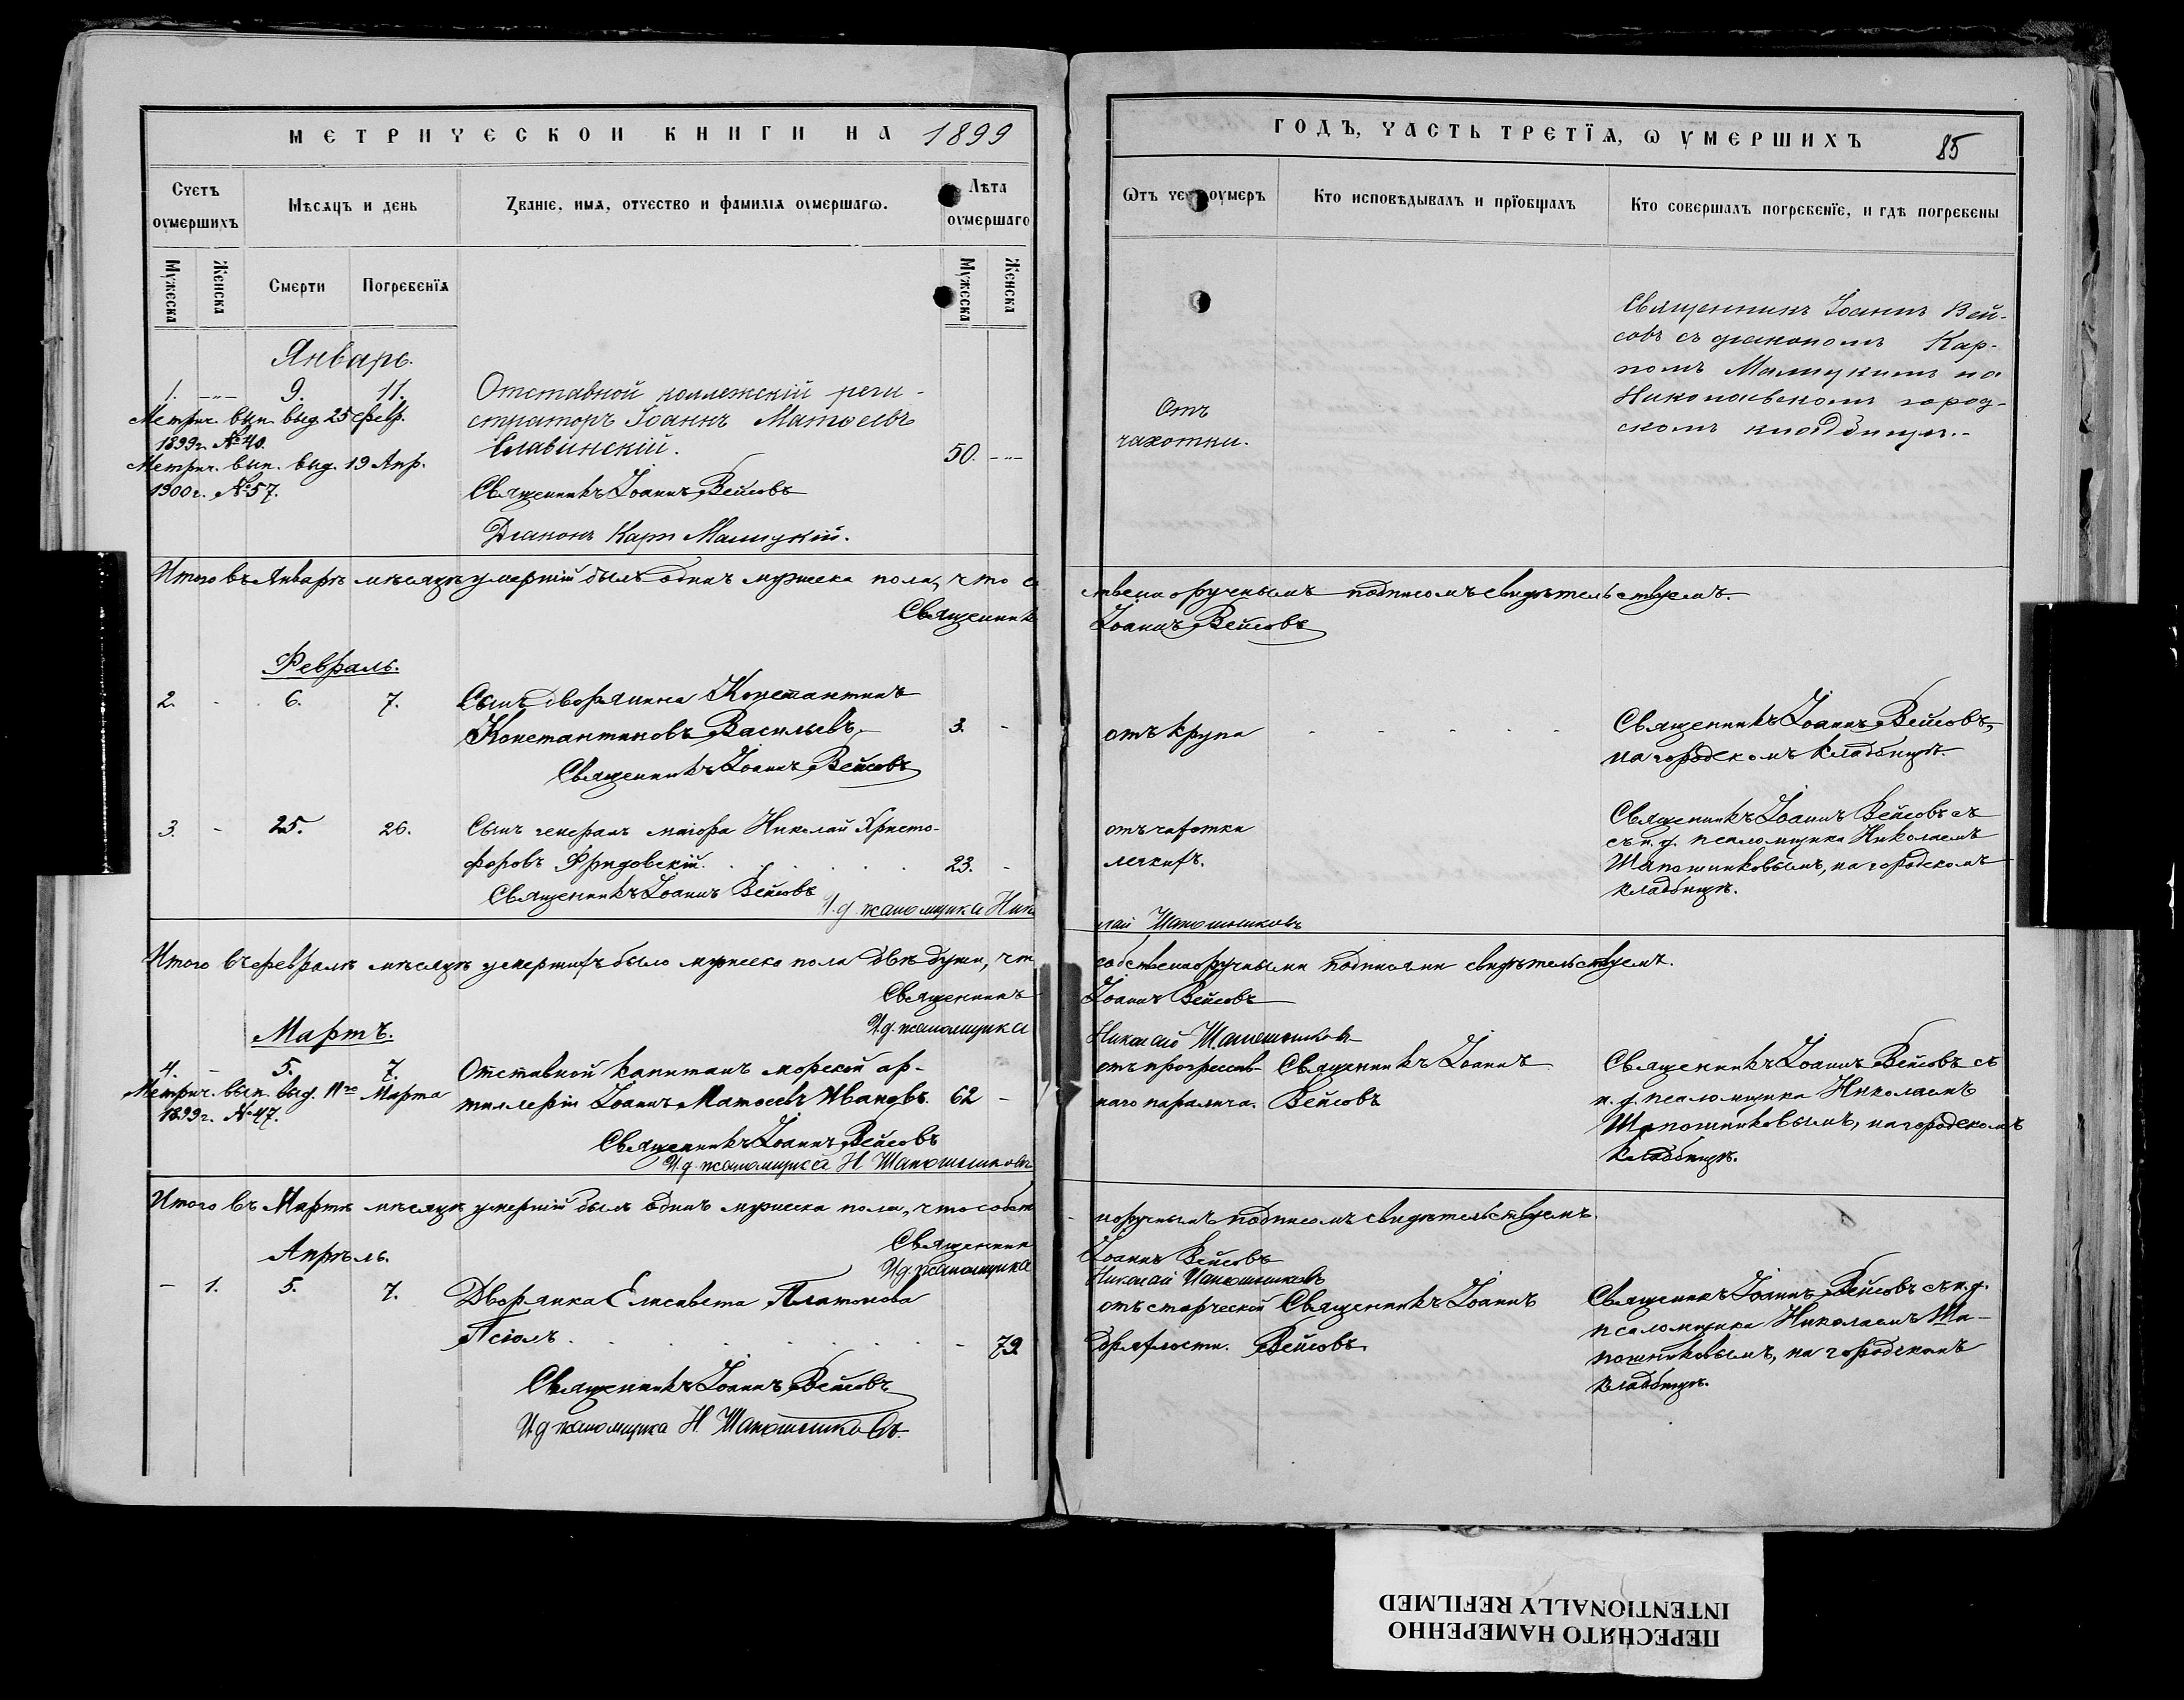 МЕТРИЧЕСКОЙ КНИГИ НА 1899
Счетъ оумершихъ
Мѣсяцъ и день
Званіе, имя, отчество и фамилія оумершагѡ.
Лѣта оумершаго
Мужеска
Женска
Смерти
Погребенїя
Мужеска
Женска
Январь.
1. 9. 11. Отставной коллежскій реги-
Метрич. вып. выд. 25 февр. страторъ Іоаннъ Матѳеевъ
1899 г. № 40. Славинскій. 50.
Метрич. вып. выд. 19 Апр.
1900 г. № 57. Священникъ Іоаннъ Вейсовъ
Діаконъ Карпъ Малицкій.
Итого въ Январѣ мѣсяцѣ умершій былъ одинъ мужеска пола, что с
Священникъ
Февраль.
2. - 6. 7. Сынъ дворянина Константинъ
Константиновъ Васильевъ. 3. -
Священникъ Іоаннъ Вейсовъ
3. - 25. 26. Сынъ генералъ маіора Николай Христо-
форовъ Фридовскій. 23. -
Священникъ Іоаннъ Вейсовъ
И. д. псаломщика Нико
Итого въ февралѣ мѣсяцѣ умершихъ было мужеска пола двѣ души, что
Священникъ
И. д. псаломщика
Мартъ.
4. - 5. 7. Отставной капитанъ морской ар-
Метрич. вып. выд. 11го Марта тиллеріи Іоаннъ Матѳеевъ Ивановъ. 62 -
1899 г. № 47.
Священникъ Іоаннъ Вейсовъ
И. д. псаломщика Н. Шапошниковъ
Итого въ Мартѣ мѣсяцѣ умершій былъ одинъ мужеска пола, что собст
Священник
И. д. псаломщика
Апрѣль.
- 1. 5. 7. Дворянка Елисавета Платонова
Псіолъ. - 79
Священникъ Іоаннъ Вейсовъ
И. д. псаломщика Н. Шапошниковъ.
ГОДЪ, ЧАСТЬ ТРЕТЇЯ, Ѡ УМЕРШИХЪ 85
Ѿтъ чего оумеръ
Кто исповѣдывалъ и прїобщалъ
Кто совершалъ погребенїе, и гдѣ погребены
Священникъ Іоаннъ Вей-
совъ съ діакономъ Кар-
помъ Малицкимъ на
Николаевскомъ город-
скомъ кладбищѣ.-
Отъ
чахотки.
твенноручнымъ подписомъ свидѣтельствуемъ.
Іоаннъ Вейсовъ
отъ крупа - - - - -
Священникъ Іоаннъ Вейсовъ,
на городскомъ кладбищѣ.
отъ чахотки
легкихъ.
Священникъ Іоаннъ Вейсовъ съ
съ и. д. псаломщика Николаемъ
Шапошниковымъ, на городскомъ
кладбищѣ.
лай Шапошниковъ
собственноручными подписями свидѣтельствуемъ.
Іоаннъ Вейсовъ
Николай Шапошниковъ
отъ прогрессив- Священникъ Іоаннъ
наго паралича. Вейсовъ
Священникъ Іоаннъ Вейсовъ съ
и. д. псаломщика Николаемъ
Шапошниковымъ, на городскомъ
кладбищѣ.
норучнымъ подписомъ свидѣтельствуемъ.
Іоаннъ Вейсовъ
Николай Шапошниковъ
отъ старческой Священникъ Іоаннъ
дряхлости. Вейсовъ.
Священникъ Іоаннъ Вейсовъ съ и. д.
псаломщика Николаемъ Ша-
пошниковымъ, на городскомъ
кладбищѣ.
ПЕРЕСНЯТО НАМЕРЕННО
INTENTIONALLY REFILMED